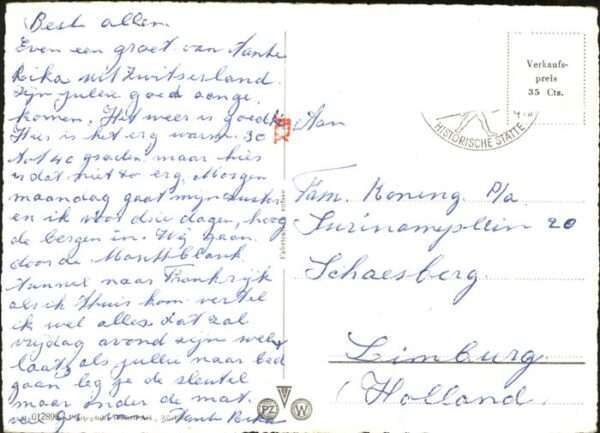 Beste allen
Even een groet van Tante
Rika uit Zwitserland.
Zijn jullie goed aange
komen. Het weer is goed
Hier is het erg warm. 30
tot 40 graden maar hier
is dat niet zo erg. Morgen
maandag gaat mijn zuster
en ik voor drie dagen, hoog
de bergen in. Wij gaan
door de Montblank
tunnel naar Frankrijk
als ik thuis kom vertel
ik wel alles. dat zal
vrijdag avond zijn wel
laat, als jullie naar bed
gaan leg je de sleutel
maar onder de mat.
Tante Rika
Verkaufs-
preis
35 Cts.
HISTORISCHE STÄTTE
Aan
Fam. Koning p/a
Surinameplein 20
Schaesberg.
Limburg
(Holland)
PZ
W